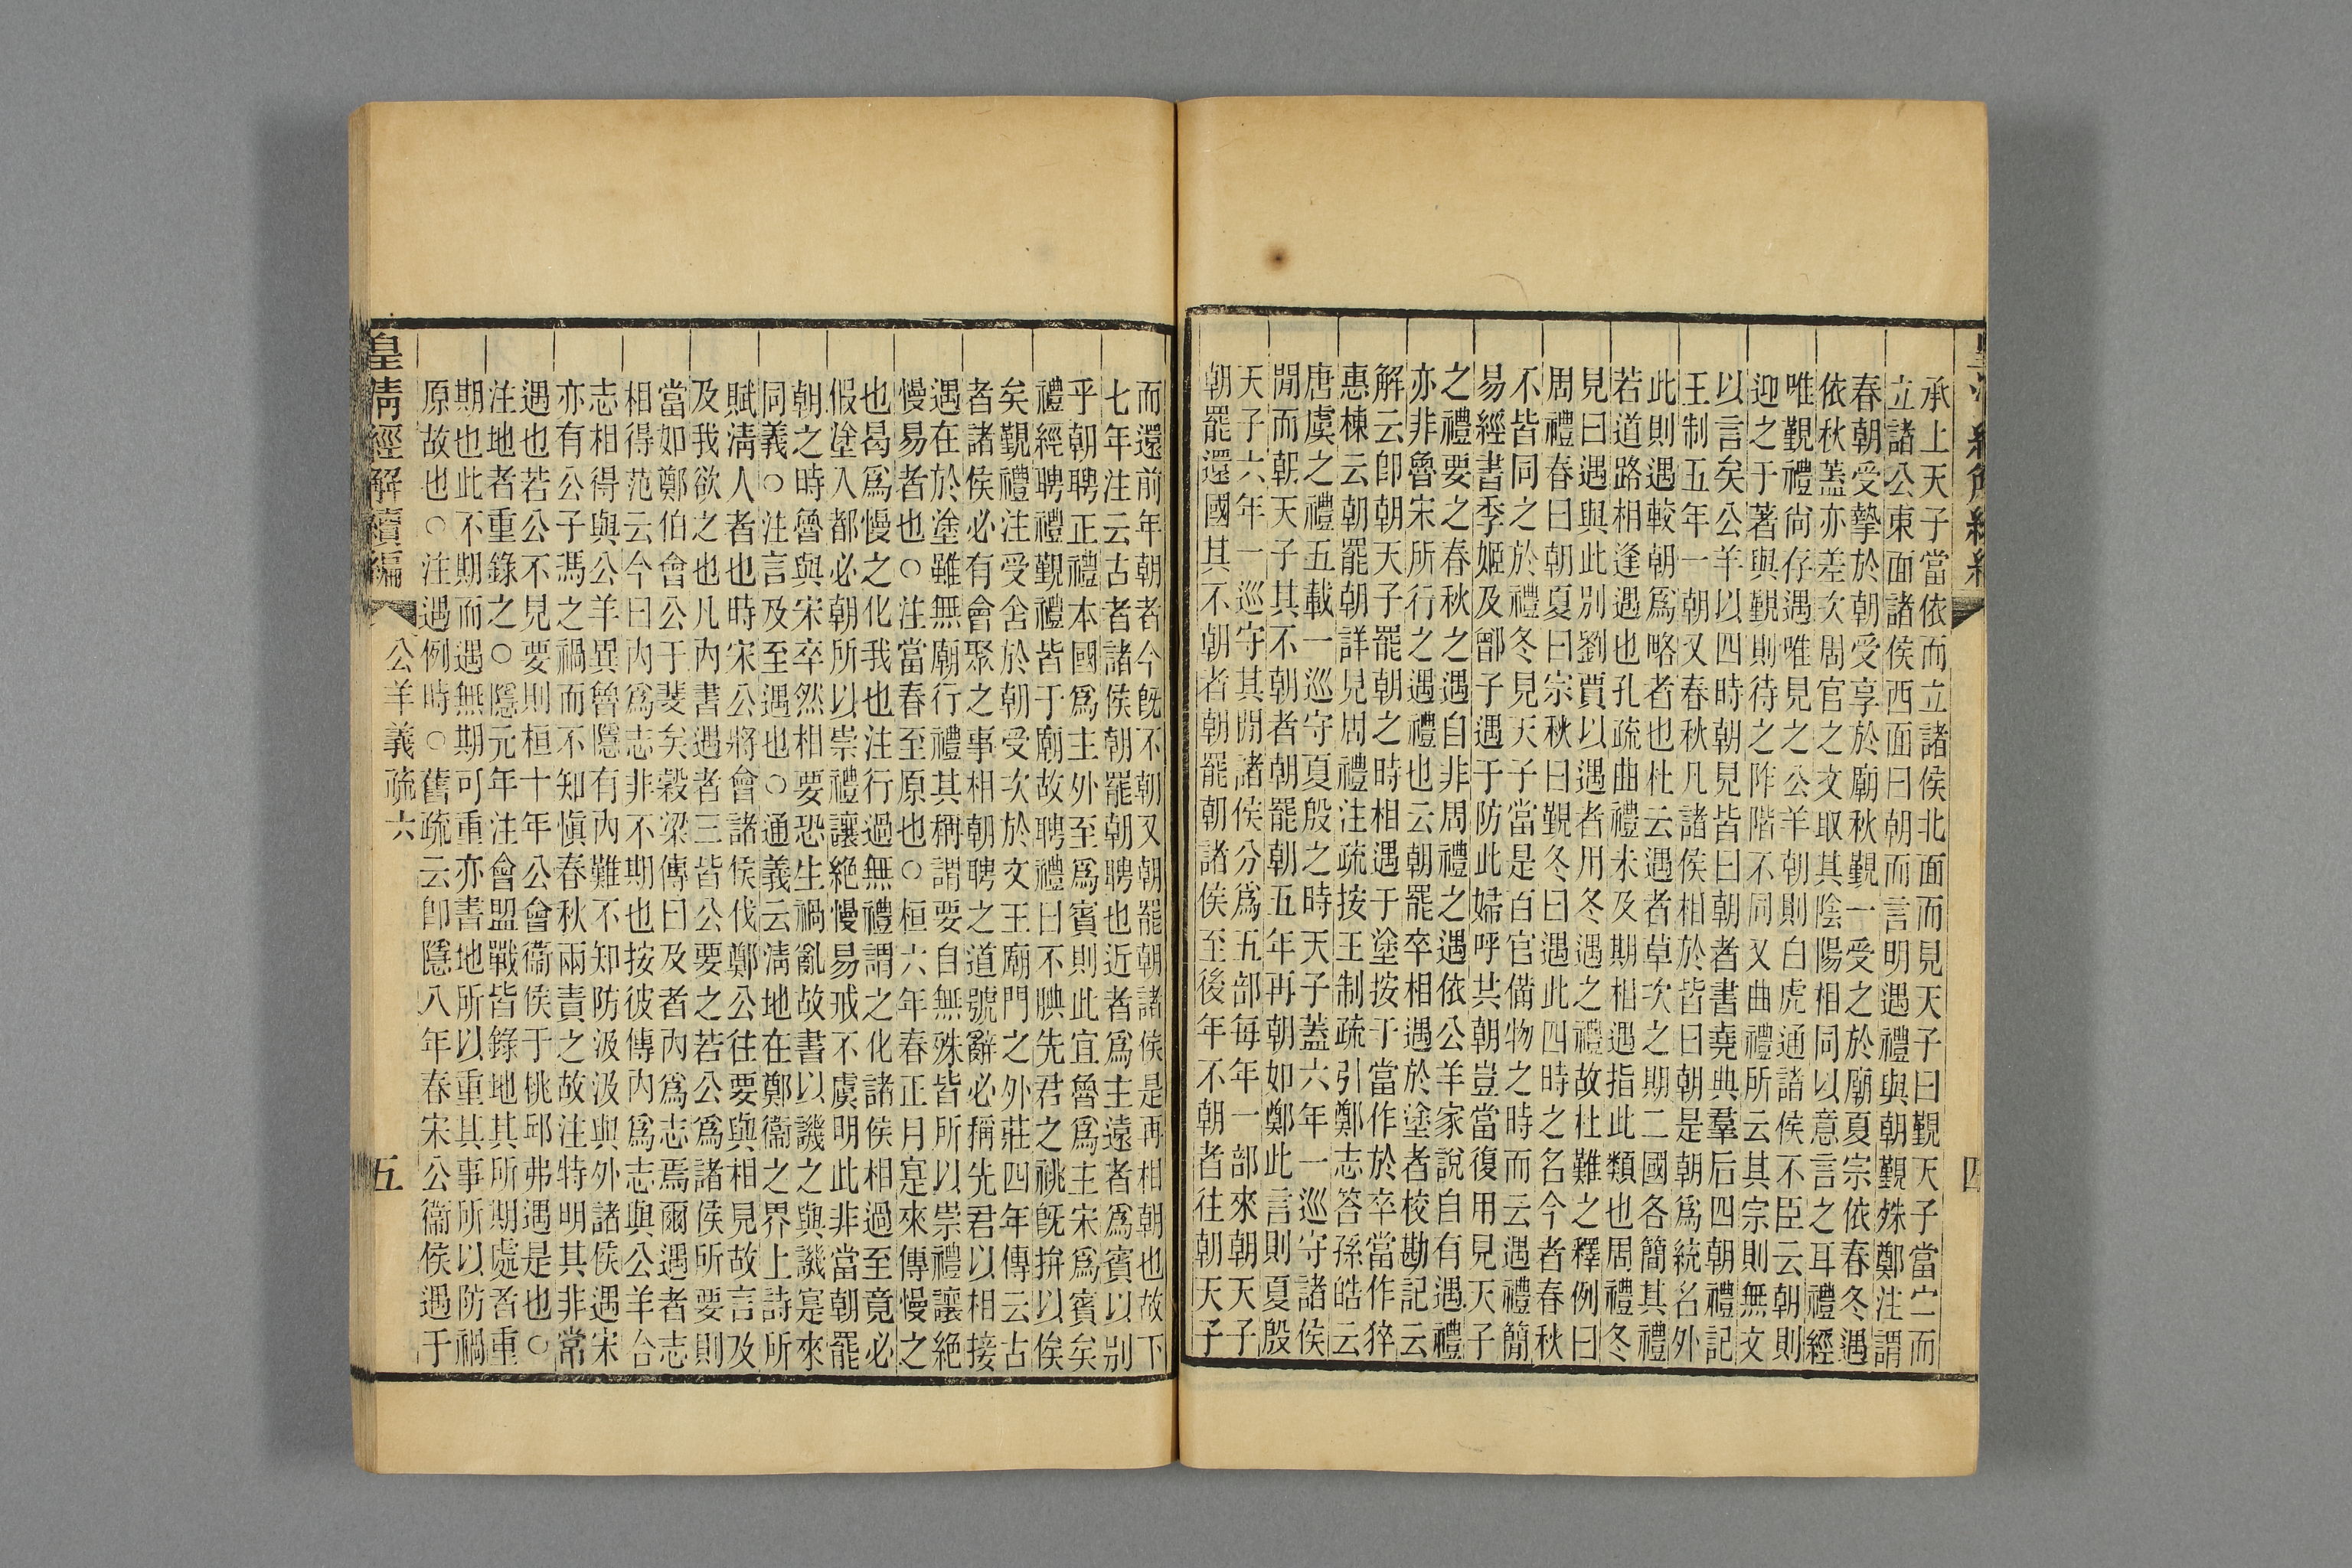 承上天子當依而立諸侯北面而見天子曰覲天子當宁而
立諸公東面諸侯西面曰朝而言明遇禮與朝覲殊鄭注謂
春朝受摯於朝受享於廟秋覲一受之於廟夏宗依春冬遇
依秋蓋亦差次周官之文取其陰陽相同以意言之耳禮經
唯覲禮尚存遇唯見之公羊朝則白虎通諸侯不臣云朝則
迎之于著與覲則待之阼階不同又曲禮所云其宗則無文
以言矣公羊以四時朝見皆曰朝者書堯典羣后四朝禮記
王制五年一朝又春秋凡諸侯相於皆曰朝是朝爲統名外
此則遇較朝爲略者也杜云遇者草次之期二國各簡其禮
若道路相逢遇也孔疏曲禮未及期相遇指此類也周禮冬
見曰遇與此別劉賈以遇者用冬遇之禮故杜難之釋例曰
周禮春曰朝夏曰宗秋曰覲冬曰遇此四時之名今者春秋
不皆同之於禮冬見天子當是百官備物之時而云遇禮簡
易經書季姬及鄫子遇于防此婦呼共朝豈當復用見天子
之禮要之春秋之遇自非周禮之遇依公羊家說自有遇禮
亦非魯宋所行之遇禮也云朝罷卒相遇於塗者校勘記云
解云卽朝天子罷朝之時相遇于塗按于當作於卒當作猝
惠棟云朝罷朝詳見周禮注疏按王制疏引鄭志答孫皓云
唐虞之禮五載一巡守夏殷之時天子蓋六年一巡守諸侯
閒而朝天子其不朝者朝罷朝五年再朝如鄭此言則夏殷
天子六年一巡守其閒諸侯分爲五部每年一部來朝天子
朝罷還國其不朝者朝罷朝諸侯至後年不朝者往朝天子
而還前年朝者今旣不朝又朝罷朝諸侯是再相朝也故下
七年注云古者諸侯朝罷朝聘也近者爲主遠者爲賓以別
乎朝聘正禮本國爲主外至爲賓則此宜魯爲主宋爲賓矣
禮經聘禮覲禮皆于廟故聘禮曰不腆先君之祧旣拚以俟
矣覲禮注受舍於朝受次於文王廟門之外莊四年傳云古
者諸侯必有會聚之事相朝聘之道號辭必稱先君以相接
遇在於塗雖無廟行禮其稱謂要自無殊皆所以崇禮讓絕
慢易者也○注當春至原也○桓六年春正月寔來傳慢之
也曷爲慢之化我也注行過無禮謂之化諸侯相過至竟必
假塗入都必朝所以崇禮讓絕慢易戒不虞明此非當朝罷
朝之時魯與宋卒然相要恐生禍亂故書以譏之與譏寔來
同義○注言及至遇也○通義云淸地在鄭衞之界上詩所
賦淸人者也時宋公將會諸侯伐鄭公往要與相見故言及
及我欲之也凡內書遇者三皆公要之若公爲諸侯所要則
當如鄭伯會公于斐矣穀梁傳曰及者內爲志焉爾遇者志
相得范云今曰內爲志非不期也按彼傳內爲志與公羊合
志相得與公羊異魯隱有內難不知防汲汲與外諸侯遇宋
亦有公子馮之禍而不知愼春秋兩責之故注特明其非常
遇也若公不見要則桓十年公會衞侯于桃邱弗遇是也○
注地者重錄之○隱元年注會盟戰皆錄地其所期處吝重
期也此不期而遇無期可重亦書地所以重其事所以防禍
原故也○注遇例時○舊疏云卽隱八年春宋公衞侯遇于
皇淸經解續編
公羊義疏六
五